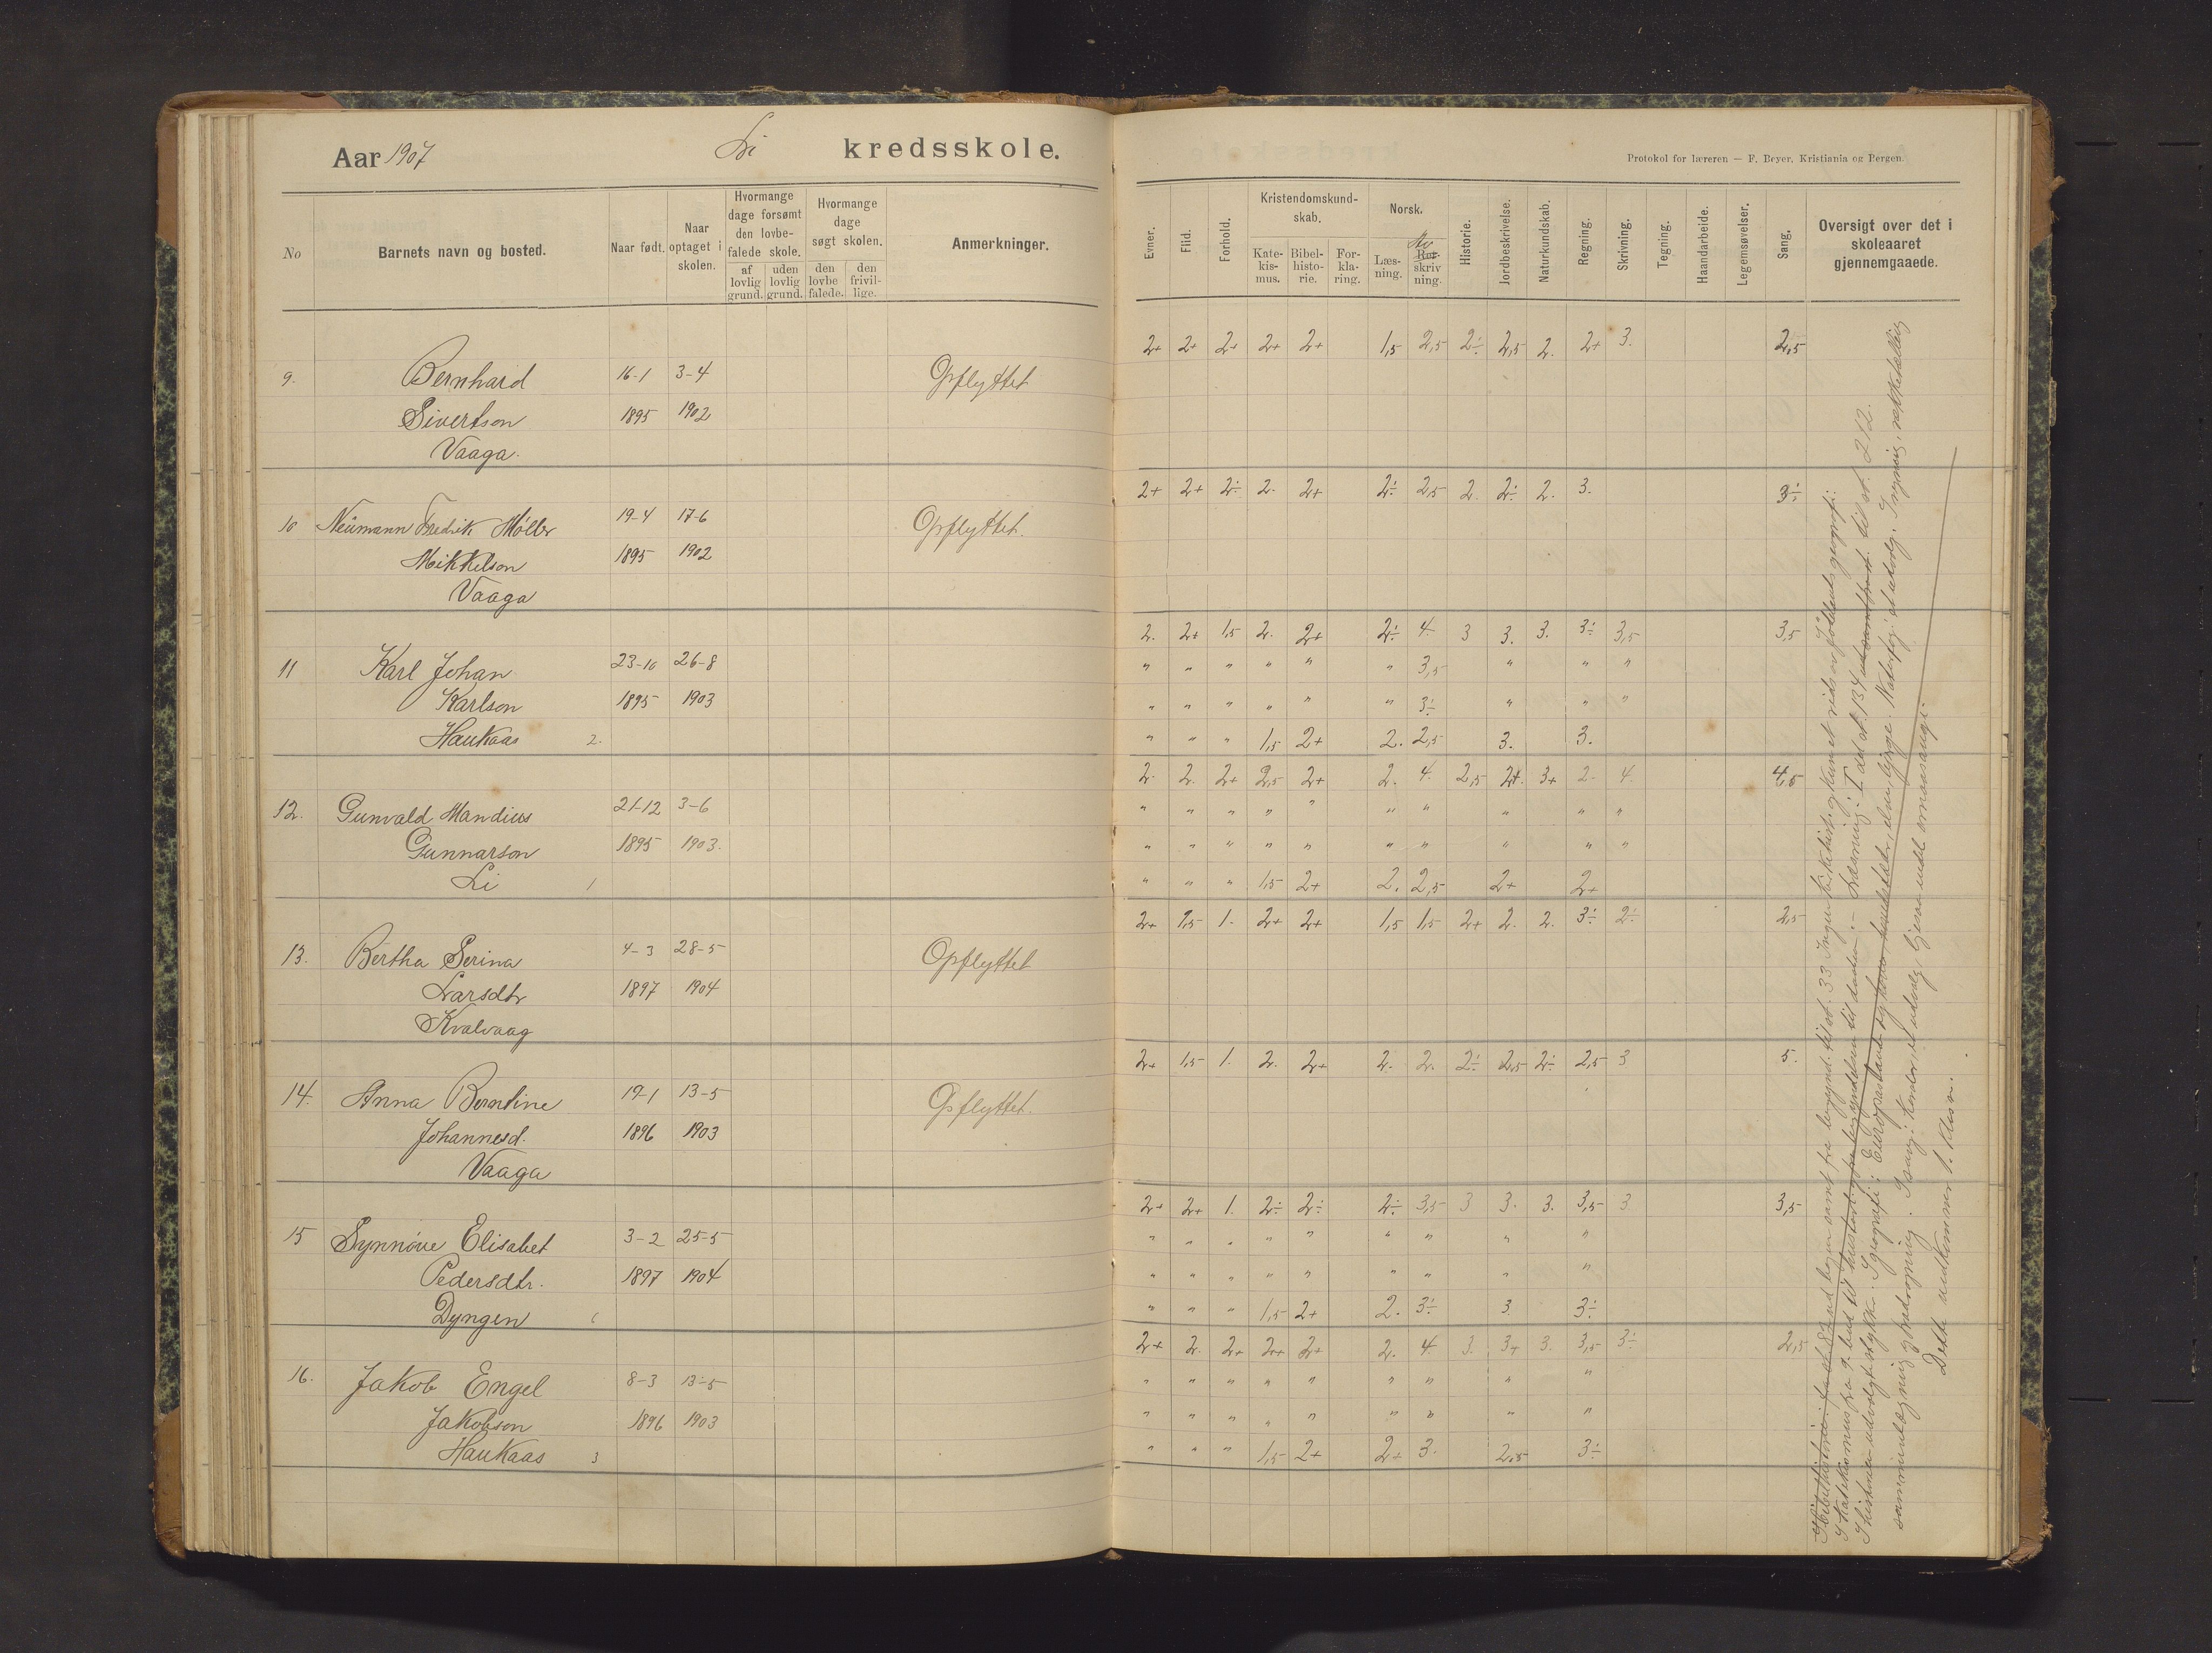 Aar 1907
Li kredsskole.
No
Barnets navn og bosted.
Naar født.
Naar optaget i skolen.
Hvormange dage forsømt den lovbefalede skole.
af lovlig grund.
uden lovlig grund.
Hvormange dage søgt skolen.
den lovbefalede.
den frivillige.
Anmerkninger.
9. Bernhard 16-1 3-4 Opflyttet
Sivertson 1895 1902
Vaaga.
10 Neumann Fredrik Møller 19-4 17-6 Opflyttet.
Mikkelson 1895 1902
Vaaga
11 Karl Johan 23-10 26-8
Karlson 1895 1903
Haukaas 2.
12. Gunvald Mandius 21-12 3-6
Gunnarson 1895 1903.
Li 1
13. Bertha Serina 4-3 28-5 Opflyttet
Larsdtr 1897 1904
Kvalvaag
14. Anna Berntine 19-1 13-5 Opflyttet.
Johannesd. 1896 1903
Vaaga
15 Synnøve Elisabet 3-2 25-5
Pedersdtr. 1897 1904
Dyngen
16. Jakob Engel 8-3 13-5
Jakobson 1896 1903
Haukaas 3
Protokol for læreren — F. Beyer, Kristiania og Bergen.
Evner.
Flid.
Forhold.
Kristendomskundskab.
Katekismus.
Bibelhistorie.
Forklaring.
Norsk.
Læsning.
Retskrivning.
Historie.
Jordbeskrivelse.
Naturkundskab.
Regning.
Skrivning.
Tegning.
Haandarbeide.
Legemsøvelser.
Sang.
Oversigt over det i skoleaaret gjennemgaaede.
2+ 2+ 2+ 2+ 2+ 1,5 2,5 2÷ 2,5 2. 2+ 3. 2,5
2+ 2+ 2÷ 2. 2+ 2÷ 2,5 2. 2÷ 2. 3. 3÷
2. 2+ 1,5 2. 2+ 2÷ 4. 3 3. 3. 3÷ 3,5 3,5
" " " " " " 3,5 " " "
" " " " " " 3÷ " " "
" " " 1,5 2+ 2. 2,5 3. 3.
2. 2. 2+ 2,5 2+ 2. 4. 2,5 2+. 3+ 2. 4. 4,5
" " " " " " " " " "
" " " " " " " " " "
" " " 1,5 2+ 2. 2,5 2+ 2+
2+ 1,5 1. 2+ 2+ 1,5 1,5 2+ 2. 2. 3÷ 2÷ 2,5
2+ 1,5 1. 2. 2+ 2. 2. 2÷ 2,5 2÷ 2,5 3 5.
2+ 2+ 1. 2÷ 2÷ 2÷ 3,5 3 3. 3. 3,5 3. 3,5
" " " " " " " " "
" " " " " " " " "
" " " 1,5 2+ 2. 3÷ 3 3÷
2+ 2. 2+ 2+ 2+ 2. 4. 3. 3+ 3. 3,5 3÷ 2,5
" " " " " " " " "
" " " " " " " " "
" " " 1,5 2+ 2+ 3. 2,5 3÷
Dette vedkommer 1. klasse.